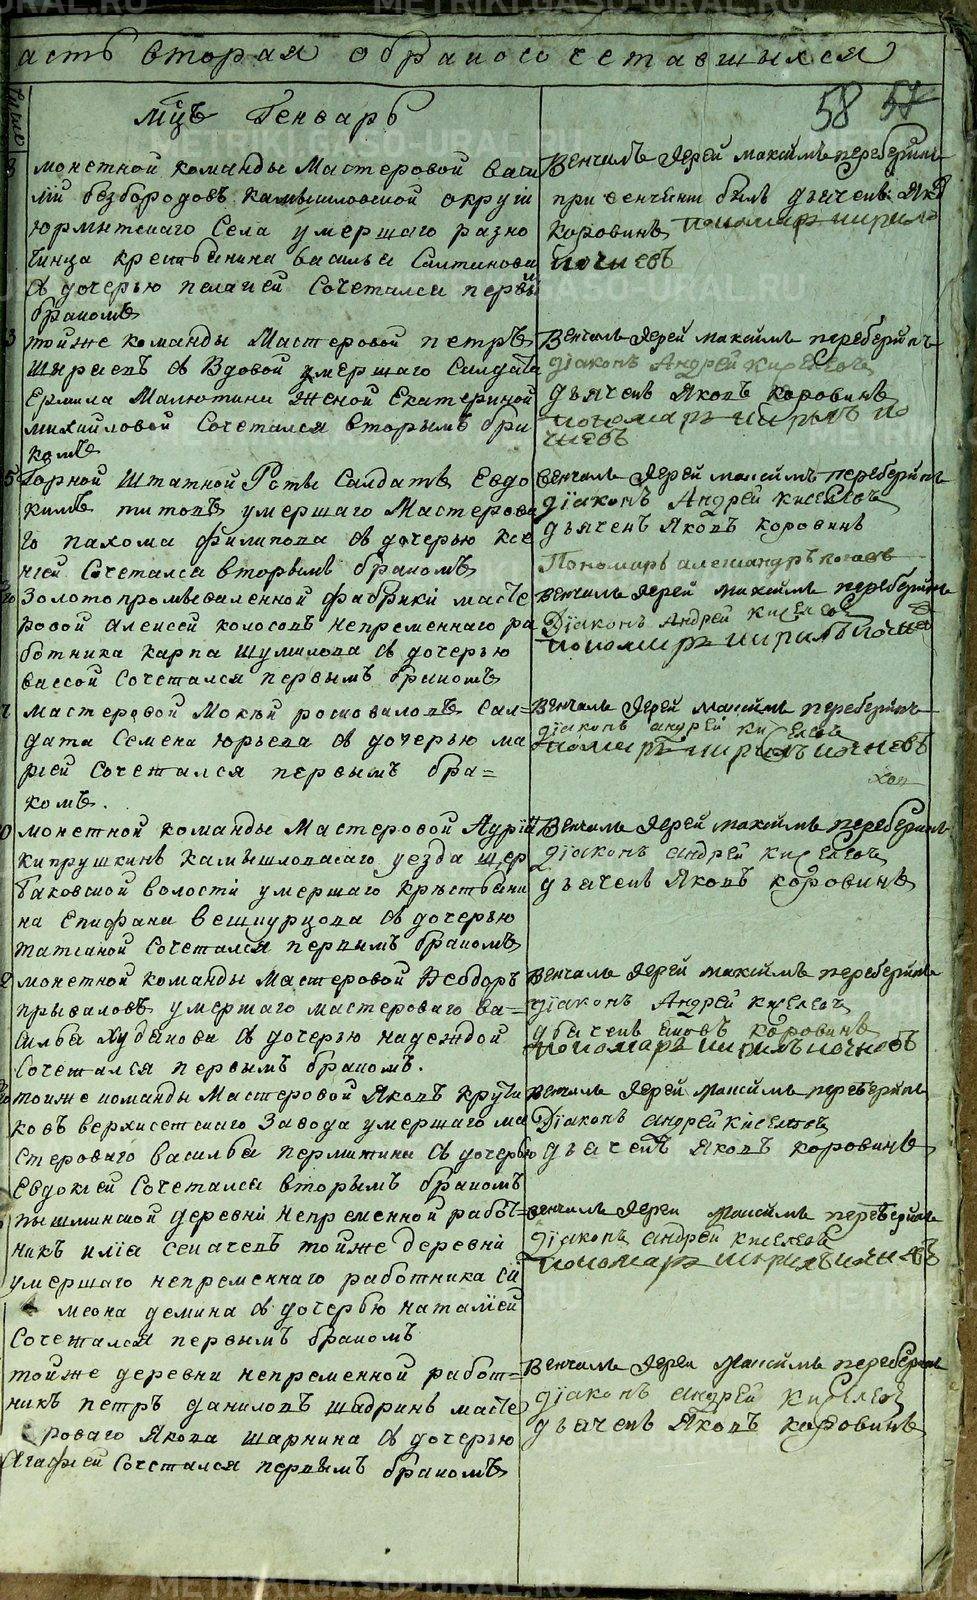 асть вторая о бракосочетавшихся
числа
58 57
мцъ Генварь
3 монетной команды Мастеровой Васи
лій безбородовъ Камышловской округи
юрмитскаго Села умершаго разно
чинца крестьянина василья Салтанова
съ дочерью пелагией Сочетался первымъ
бракомъ
Венчалъ Иерей максимъ переберинъ
при венчании былъ дьячекъ Яко
коровинъ пономарь кирило
кочневъ
3 тойже команды Мастеровой петръ
съ Вдовой умершаго Салдата
Ермила Малютина Женой Екатериной
михайловой Сочетался вторымъ бра
комъ
Венчалъ Иерей максимъ переберинъ
діаконъ Андрей Киселевъ
дьячекъ Яковъ коровинъ
пономарь кирилъ ко
чневъ
5 Горной Штатной Роты Салдатъ Евдо
кимъ титовъ умершаго Мастерова
го пахома филипова съ дочерью ксе
ніей Сочетался вторымъ бракомъ
Венчалъ Иерей максимъ переберинъ
діаконъ Андрей Киселевъ
дьячекъ Яковъ коровинъ
Пономарь александръ
Золотопромываленной фабрики масте
ровой алексей колосовъ непременнаго ра
ботника карпа шумилова съ дочерью
вассой Сочетался первымъ бракомъ
Венчалъ Иерей максимъ переберинъ
Діаконъ Андрей Киселевъ
пономарь кирилъ кочнев
мастеровой Мокѣй росковаловъ Сал-
дата Семена юрьева съ дочерью ма
рией Сочетался первымъ бра=
комъ.
Венчалъ Иерей максимъ переберинъ
діаконъ андрей киселевъ
пономарь кирилъ кочневъ
монетной команды Мастеровой
кипрушкинъ камышловскаго уезда щер
баковской волости умершаго крѣстьяни
на Епифана вешкурцова съ дочерью
татианой Сочетался первымъ бракомъ
Венчалъ Иерей максимъ переберинъ
діаконъ андрей киселевъ
дьячекъ Яковъ коровинъ
монетной команды Мастеровой Ѳеодоръ
прываловъ умершаго мастероваго ва=
силья Худякова съ дочерью надеждой
Сочетался первымъ бракомъ.
Венчалъ Иерей максимъ переберинъ
діаконъ Андрей Киселевъ
дьячекъ яковъ коровинъ
пономарь кирилъ кочневъ
тойже команды Мастеровой Яковъ крути
ковъ верхисетскаго Завода умершаго ма
стероваго василья пермитина съ дочерью
Евдокией Сочетался вторымъ бракомъ
Венчалъ Иерей максимъ переберинъ
Діаконъ андрей киселевъ
дьячекъ Яковъ коровинъ
пышминской деревни непременной работ=
никъ илія сѣначевъ тойже деревни
умершаго непременнаго работника си
меона демина съ дочерью наталией
Сочетался первымъ бракомъ
Венчалъ Иерей максимъ переберинъ
діаконъ андрей киселевъ
пономарь кирилъ кочневъ
тойже деревни непременной работ=
никъ петръ даниловъ шадринъ масте
роваго Якова шарнина съ дочерью
Агафией Сочетался первымъ бракомъ
Венчалъ Иерей максимъ переберинъ
діаконъ андрей киселевъ
дьячекъ Яковъ коровинъ
METRIKI.GASO-URAL.RU